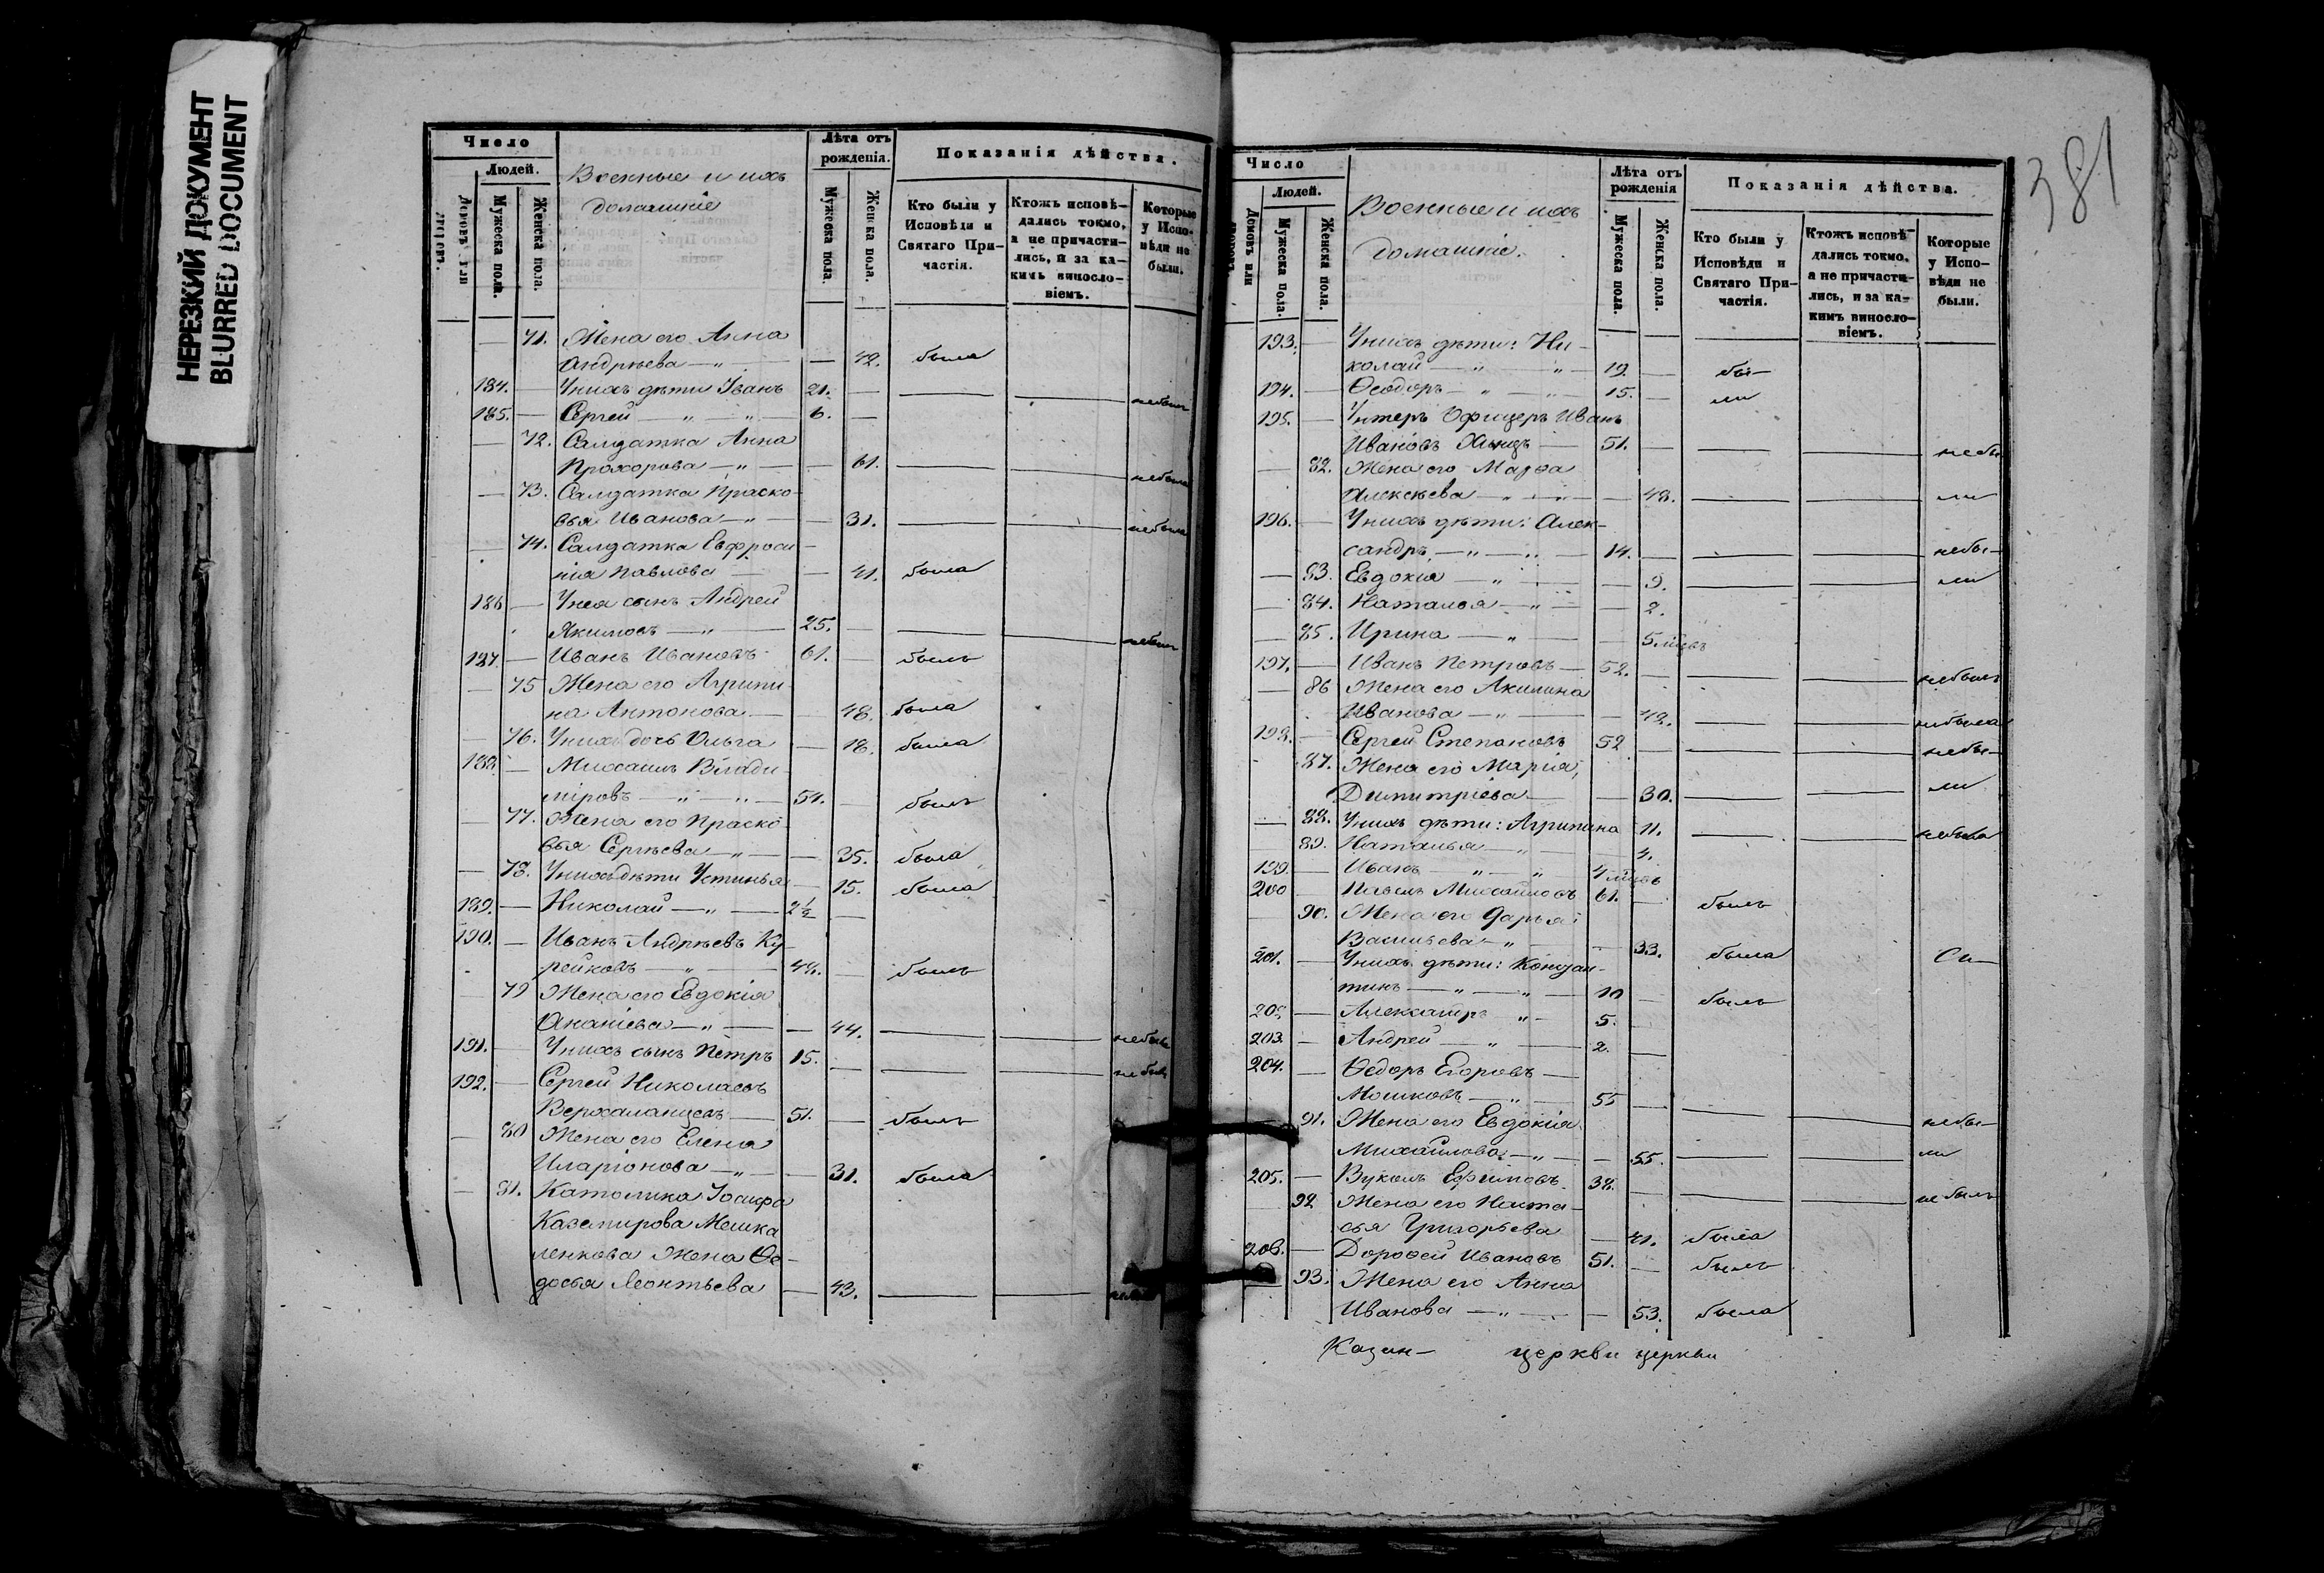 НЕРЕЗКИЙ ДОКУМЕНТ
BLURRED DOCUMENT
Число
Людей.
Мужеска пола.
Женска пола.
Военные и ихъ
домашніе
Лѣта отъ
рожденія.
Мужеска пола
Женска пола.
Показанія дѣйства.
Кто были у
Исповѣди и
Святаго При-
частія.
Ктожъ исповѣ-
дались токмо,
а не причасти-
лись, и за ка-
кимъ винословіемъ.
Которые
у Испо-
вѣди не
были.
— 71. Жена его Анна
Андрѣева — „ — 42. была
184. — У нихъ дѣти Иванъ 21. — небылъ
185. — Сергей „ „ 6. —
— 72. Салдатка Анна
Прохорова — „ — — 61. небыла
— 73. Салдатка Праско-
вья Иванова — „ — — 31. небыла
— 74. Салдатка Евфроси-
нія Павлова — — 41. была
186 — У нея сынъ Андрей
Якимовъ — „ — 25. — небылъ
187. — Иванъ Ивановъ 61. — былъ
— 75 Жена его Агрипи-
на Антонова — 48. была
— 76. У нихъ дочь Ольга — 18. была
188. — Михаилъ Влади-
міровъ — „ — „ — 54. — былъ
— 77. Жена его Праско-
вья Сергѣева — „ — — 35. была
— 78. У нихъ дѣти Устинья — 15. была
189. — Николай — „ — 2½ —
190. — Иванъ Андрѣевъ Ку-
рейковъ — „ — 48. — былъ
79 Жена его Евдокія
Ананіева — „ — — 44. небыла
191. — У нихъ сынъ Петръ 15. — небылъ
192. — Сергей Николаевъ
51. — былъ
— 80 Жена его Елена
Иларіонова — „ — — 31. была
— 81. Католика Іосифа
Каземирова Мошка
ленкова Жена Ѳе-
досья Леонтьева — 43.
381
Число
Людей.
Домовъ или
Мужеска пола.
Женска пола.
Военные и ихъ
домашніе.
Лѣта отъ
рожденія
Мужеска пола.
Женска пола.
Показанія дѣйства.
Кто были у
Исповѣди и
Святаго При-
частія.
Ктожъ исповѣ-
дались токмо,
а не причасти-
лись, и за ка-
кимъ винословіемъ.
Которые
у Испо-
вѣди не
были.
193. — У нихъ дѣти: Ни-
колай — „ — „ — 19. — бы-
194. — Ѳеодоръ — „ — „ — 15. — ли
195. — Унтеръ Офицеръ Иванъ
Ивановъ 51. — небы
— 82. Жена его Марѳа
Алексѣева — „ — — 48. ли
196. — У нихъ дѣти: Алек-
сандръ — „ — „ — 14. — небы-
— 83. Евдокія — „ — — 9. ли
— 84. Наталья — „ — — 2.
— 85. Ирина — „ — — 5 мѣцъ
197. — Иванъ Петровъ — 52. — небылъ
— 86 Жена его Акилина
Иванова — „ — — 42. небыла
198. — Сергей Степановъ 52 — небы-
87. Жена его Марія
Димитріева — — 30. ли
— 88. У нихъ дѣти: Агрипина 11. небыла
89. Наталья — „ — 4.
199. — Иванъ — „ — „ 4 мѣцъ
200 — Михайловъ 61. — былъ
90. Жена его Дарья
Васильева — „ — — 33. была
201. — У нихъ дѣти: Констан-
тинъ — „ — „ — 10 — былъ
202 — Александръ „ — 5. —
203. — Андрей — „ — 2. —
204. — Ѳедоръ Егоровъ —
Мошковъ — „ — 55 — небы-
— 91. Жена его Евдокія
Михайлова — „ — — 55. ли
205. — Вуколъ Ефимовъ 38. — небылъ
92 Жена его Наста-
сья Григорьева — 41. была
206. — Дороѳей Ивановъ 51. — былъ
— 93. Жена его Анна
Иванова — „ — — 53. была
Казан- церкви церкви